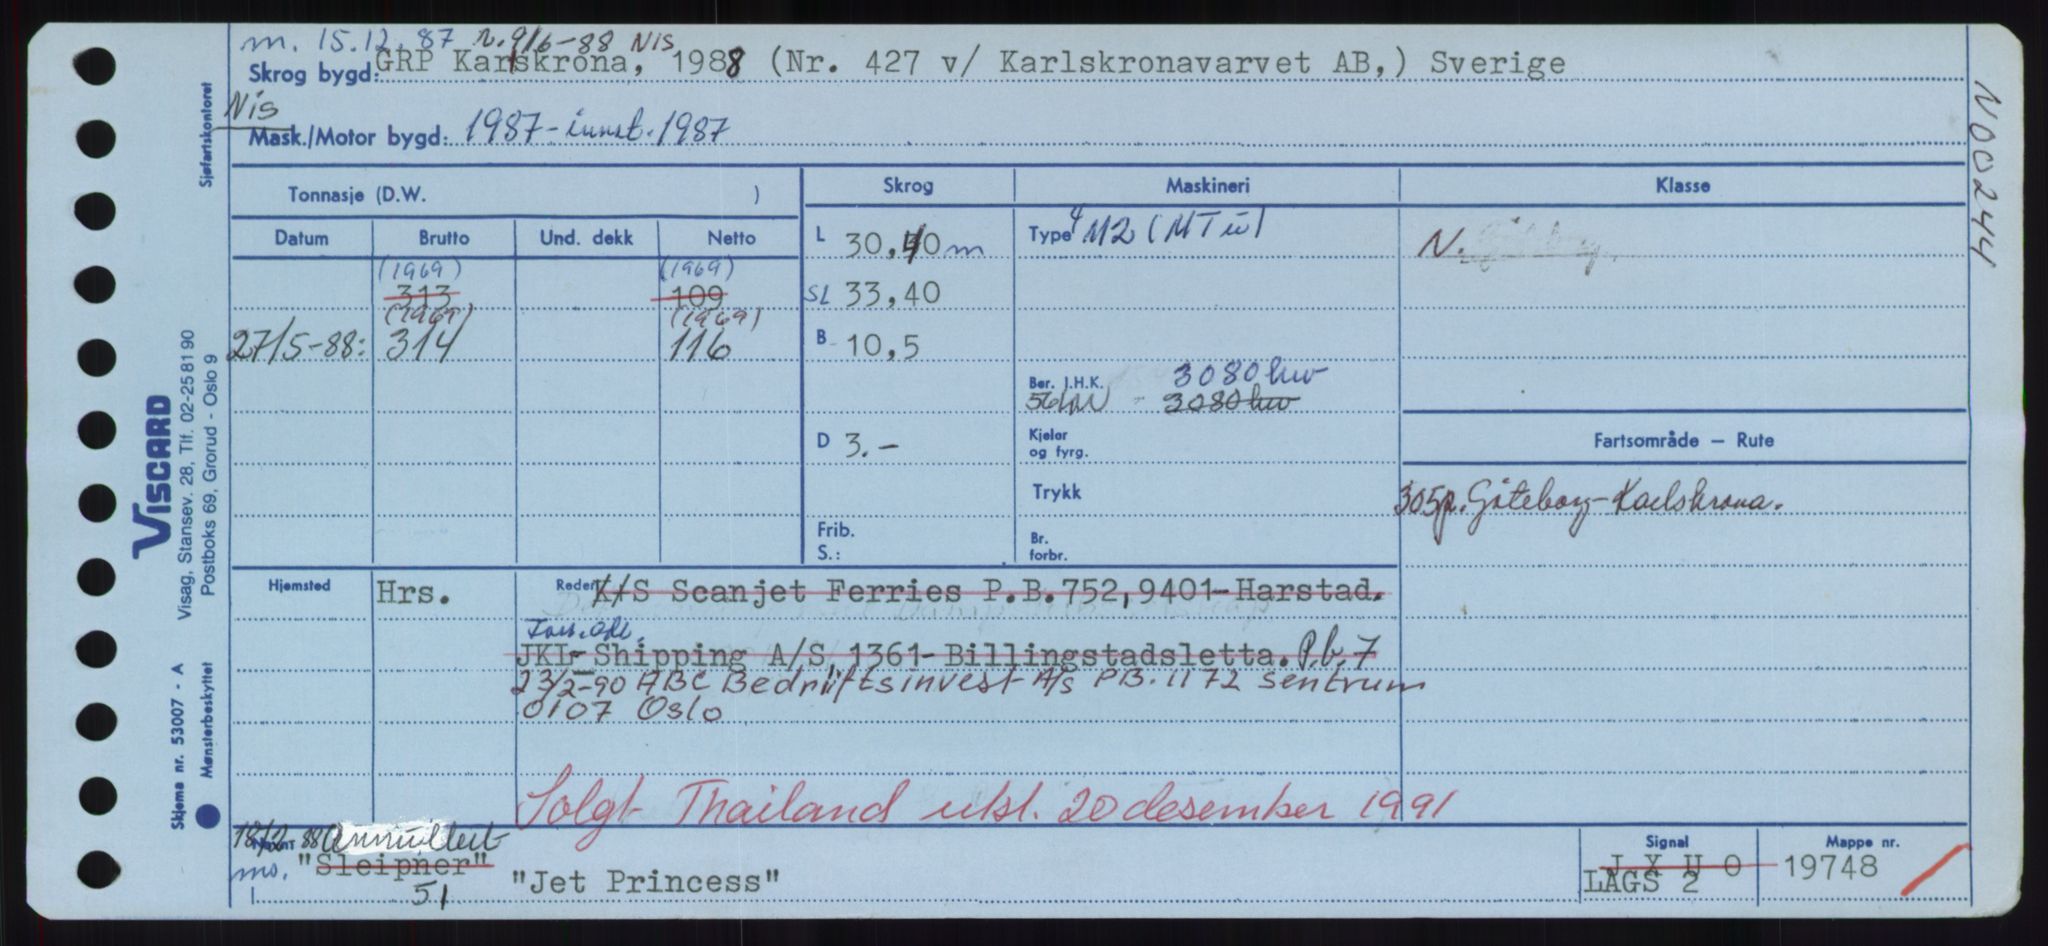 m. 15.12.87 r. 9/6-88 NIS
Skrog bygd: GRP Karlskrona, 1988 (Nr. 427 v/ Karlskronavarvet AB,) Sverige
Nis
Mask./Motor bygd: 1987 - innst. 1987
Tonnasje (D.W. )
Skrog Maskineri Klasse
Datum Brutto Und. dekk Netto
L 30,40 m
Type 4 M2 (MTU)
N.
(1969) (1969)
313 109
SL 33,40
(1969) (1969)
27/5-88: 314 116
B 10,5
Ber. I.H.K. 3080 kw
3080 kw
D 3.-
Kjeler
og fyrg.
Fartsområde – Rute
Trykk
305p. Göteborg-Karlskrona.
Frib.
S.:
Br.
forbr.
Hjemsted Hrs. Rederi K/S Scanjet Ferries P.B.752,9401-Harstad.
JKL-Shipping A/S, 1361-Billingstadsletta. P.b. 7
23/2-90 ABC Bedriftsinvest A/S PB. 1172 sentrum
0107 Oslo
Solgt Thailand utsl. 20 desember 1991
18/2 88 Annullert
Signal Mappe nr.
ms. "Sleipner"
J X U O 19748
51 "Jet Princess" LAGS 2
N00244
Sjøfartskontoret
VISCARD
Visag, Stansev. 28, Tlf. 02-25 81 90
Postboks 69, Grorud - Oslo 9
Skjema nr. 53007 - A
Mønsterbeskyttet